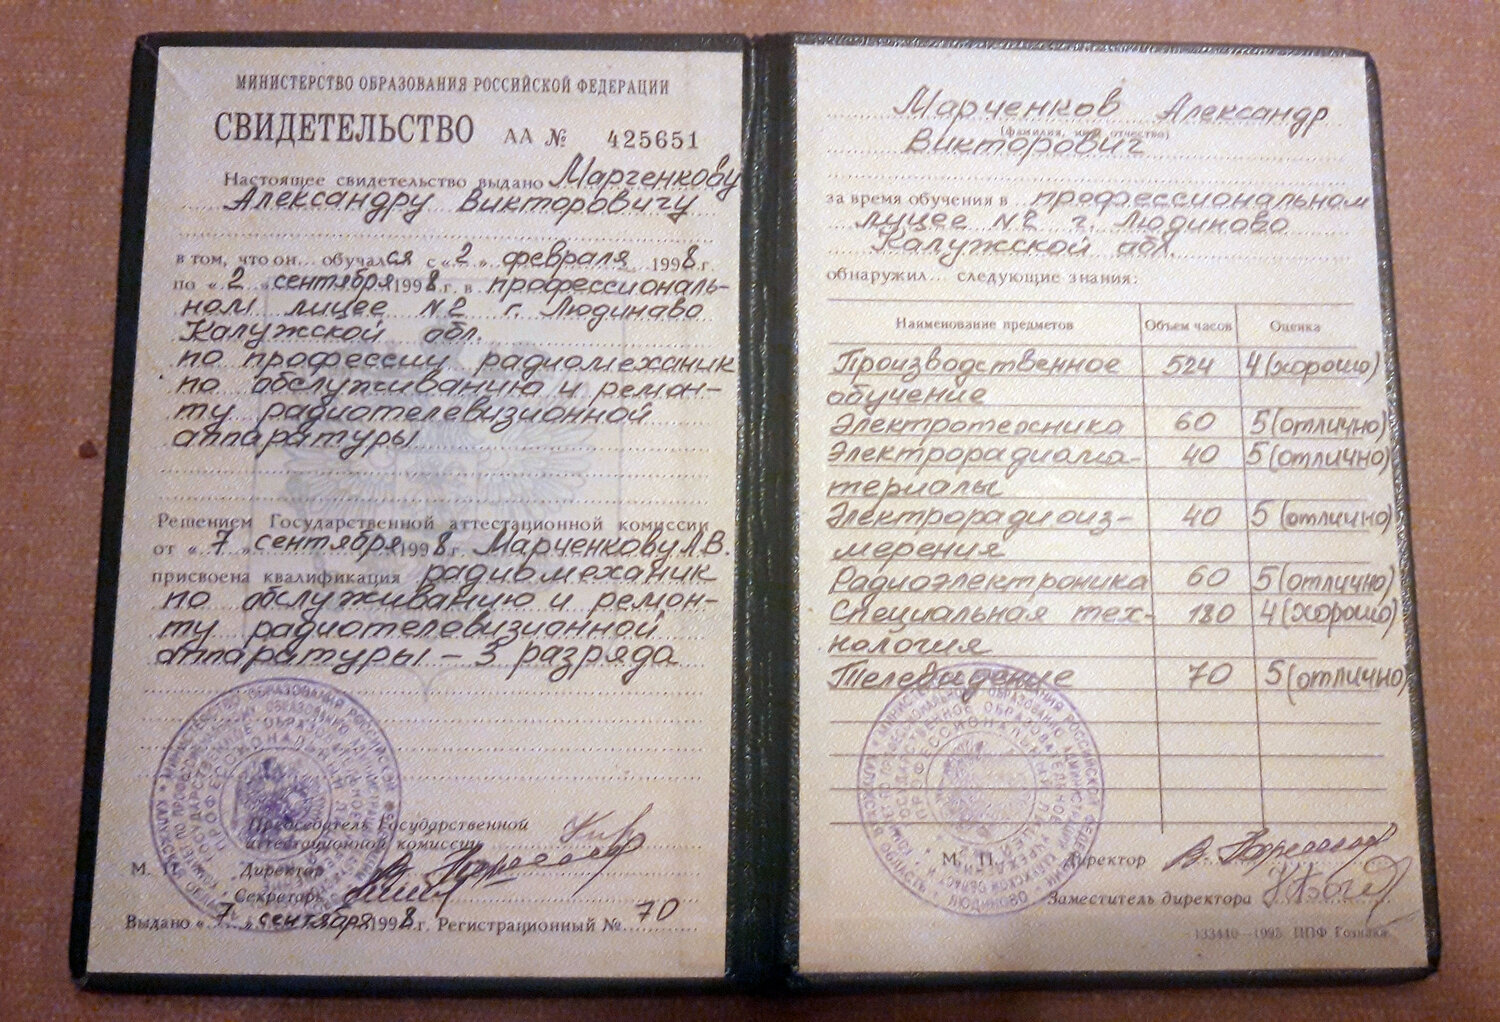 МИНИСТЕРСТВО ОБРАЗОВАНИЯ РОССИЙСКОЙ ФЕДЕРАЦИИ
СВИДЕТЕЛЬСТВО АА № 425651
Настоящее свидетельство выдано Марченкову
Александру Викторовичу
в том, что он... обучался с «2» февраля 1998 г.
по «2» сентября 1998 г. в профессиональ-
ном лицее №2 г. Людиново
Калужской обл.
по профессии радиомеханик
по обслуживанию и ремон-
ту радиотелевизионной
аппаратуры
Решением Государственной аттестационной комиссии
от «7» сентября 1998 г. Марченкову А.В.
присвоена квалификация радиомеханик
по обслуживанию и ремон-
ту радиотелевизионной
аппаратуры – 3 разряда
Председатель Государственной
аттестационной комиссии
М. П. Директор
Секретарь
Выдано «7» сентября 1998 г. Регистрационный № 70
Марченков Александр
(фамилия, имя, отчество)
Викторович
за время обучения в профессиональном
лицее №2 г. Людиново
Калужской обл.
обнаружил... следующие знания:
Наименование предметов Объем часов Оценка
Производственное 524 4 (хорошо)
обучение
Электротехника 60 5 (отлично)
Электрорадиома- 40 5 (отлично)
териалы
Электрорадиоиз- 40 5 (отлично)
мерения
Радиоэлектроника 60 5 (отлично)
Специальная тех- 180 4 (хорошо)
нология
Телевидение 70 5 (отлично)
М. П. Директор
Заместитель директора
133440—1995 ППФ Гознака